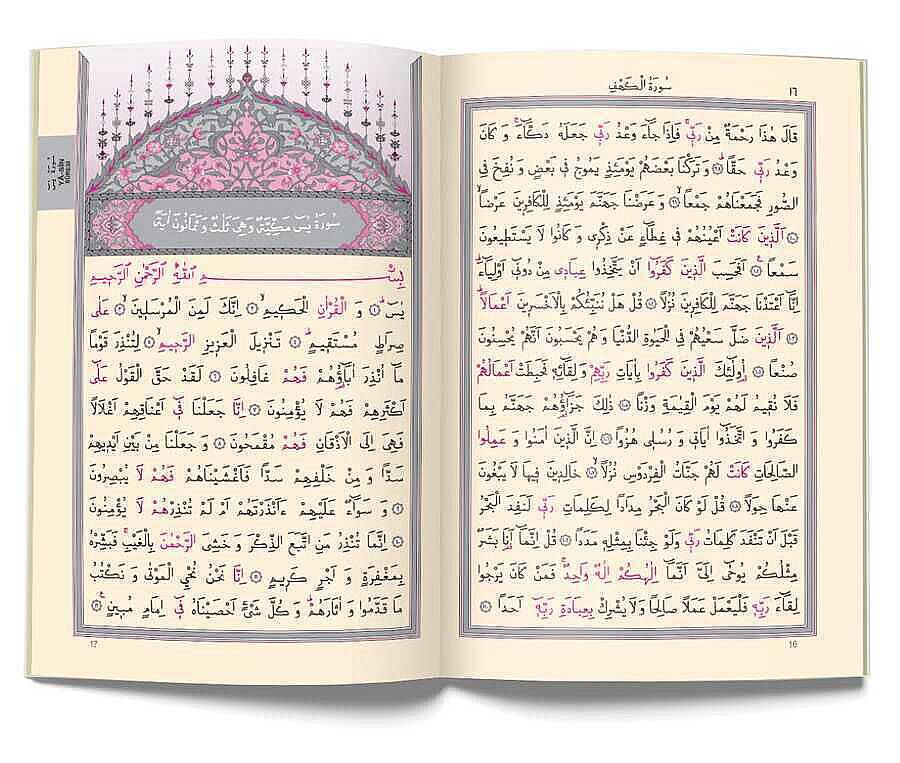 سُورَةُ الْكَهْفِ
١٦
قَالَ هٰذَا رَحْمَةٌ مِنْ رَبّ۪ي فَاِذَا جَٓاءَ وَعْدُ رَبّ۪ي جَعَلَهُ دَكَّٓاءَۚ وَ كَانَ
وَعْدُ رَبّ۪ي حَقًّاۜ ﴿٩٨﴾ وَ تَرَكْنَا بَعْضَهُمْ يَوْمَئِذٍ يَمُوجُ ف۪ي بَعْضٍ وَ نُفِخَ فِي
الصُّورِ فَجَمَعْنَاهُمْ جَمْعًاۙ ﴿٩٩﴾ وَ عَرَضْنَا جَهَنَّمَ يَوْمَئِذٍ لِلْكَافِر۪ينَ عَرْضًاۙ
﴿١٠٠﴾ اَلَّذ۪ينَ كَانَتْ اَعْيُنُهُمْ ف۪ي غِطَٓاءٍ عَنْ ذِكْر۪ي وَ كَانُوا لَا يَسْتَط۪يعُونَ
سَمْعًاۚ ﴿١٠١﴾ اَفَحَسِبَ الَّذ۪ينَ كَفَرُٓوا اَنْ يَتَّخِذُوا عِبَاد۪ي مِنْ دُون۪ٓي اَوْلِيَٓاءَۜ
اِنَّٓا اَعْتَدْنَا جَهَنَّمَ لِلْكَافِر۪ينَ نُزُلًا ﴿١٠٢﴾ قُلْ هَلْ نُنَبِّئُكُمْ بِالْاَخْسَر۪ينَ اَعْمَالًاۜ
﴿١٠٣﴾ اَلَّذ۪ينَ ضَلَّ سَعْيُهُمْ فِي الْحَيٰوةِ الدُّنْيَا وَ هُمْ يَحْسَبُونَ اَنَّهُمْ يُحْسِنُونَ
صُنْعًا ﴿١٠٤﴾ اُو۬لٰٓئِكَ الَّذ۪ينَ كَفَرُوا بِاٰيَاتِ رَبِّهِمْ وَ لِقَٓائِه۪ فَحَبِطَتْ اَعْمَالُهُمْ
فَلَا نُق۪يمُ لَهُمْ يَوْمَ الْقِيٰمَةِ وَزْنًا ﴿١٠٥﴾ ذٰلِكَ جَزَٓاؤُ۬هُمْ جَهَنَّمُ بِمَا
كَفَرُوا وَ اتَّخَذُٓوا اٰيَات۪ي وَ رُسُل۪ي هُزُوًا ﴿١٠٦﴾ اِنَّ الَّذ۪ينَ اٰمَنُوا وَ عَمِلُوا
الصَّالِحَاتِ كَانَتْ لَهُمْ جَنَّاتُ الْفِرْدَوْسِ نُزُلًاۙ ﴿١٠٧﴾ خَالِد۪ينَ ف۪يهَا لَا يَبْغُونَ
عَنْهَا حِوَلًا ﴿١٠٨﴾ قُلْ لَوْ كَانَ الْبَحْرُ مِدَادًا لِكَلِمَاتِ رَبّ۪ي لَنَفِدَ الْبَحْرُ
قَبْلَ اَنْ تَنْفَدَ كَلِمَاتُ رَبّ۪ي وَلَوْ جِئْنَا بِمِثْلِه۪ مَدَدًا ﴿١٠٩﴾ قُلْ اِنَّمَٓا اَنَا۬ بَشَرٌ
مِثْلُكُمْ يُوحٰٓى اِلَيَّ اَنَّمَٓا اِلٰهُكُمْ اِلٰهٌ وَاحِدٌۚ فَمَنْ كَانَ يَرْجُوا
لِقَٓاءَ رَبِّه۪ فَلْيَعْمَلْ عَمَلًا صَالِحًا وَلَا يُشْرِكْ بِعِبَادَةِ رَبِّه۪ٓ اَحَدًا ﴿١١٠﴾
16
سُورَةُ يٰسٓ
YÂ-SÎN
SÛRESİ
سُورَةُ يٰسٓ مَكِّيَّةٌ وَهِيَ ثَلٰثٌ وَثَمَانُونَ اٰيَةً
بِسْمِ اللّٰهِ الرَّحْمٰنِ الرَّح۪يمِ
يٰسٓۜ ﴿١﴾ وَ الْقُرْاٰنِ الْحَك۪يمِۙ ﴿٢﴾ اِنَّكَ لَمِنَ الْمُرْسَل۪ينَۙ ﴿٣﴾ عَلٰى
صِرَاطٍ مُسْتَق۪يمٍۜ ﴿٤﴾ تَنْز۪يلَ الْعَز۪يزِ الرَّح۪يمِۙ ﴿٥﴾ لِتُنْذِرَ قَوْمًا
مَٓا اُنْذِرَ اٰبَٓاؤُ۬هُمْ فَهُمْ غَافِلُونَ ﴿٦﴾ لَقَدْ حَقَّ الْقَوْلُ عَلٰٓى
اَكْثَرِهِمْ فَهُمْ لَا يُؤْمِنُونَ ﴿٧﴾ اِنَّا جَعَلْنَا ف۪ٓي اَعْنَاقِهِمْ اَغْلَالًا
فَهِيَ اِلَى الْاَذْقَانِ فَهُمْ مُقْمَحُونَ ﴿٨﴾ وَ جَعَلْنَا مِنْ بَيْنِ اَيْد۪يهِمْ
سَدًّا وَ مِنْ خَلْفِهِمْ سَدًّا فَاَغْشَيْنَاهُمْ فَهُمْ لَا يُبْصِرُونَ
﴿٩﴾ وَ سَوَٓاءٌ عَلَيْهِمْ ءَاَنْذَرْتَهُمْ اَمْ لَمْ تُنْذِرْهُمْ لَا يُؤْمِنُونَ
﴿١٠﴾ اِنَّمَا تُنْذِرُ مَنِ اتَّبَعَ الذِّكْرَ وَ خَشِيَ الرَّحْمٰنَ بِالْغَيْبِۚ فَبَشِّرْهُ
بِمَغْفِرَةٍ وَ اَجْرٍ كَر۪يمٍ ﴿١١﴾ اِنَّا نَحْنُ نُحْيِ الْمَوْتٰى وَ نَكْتُبُ
مَا قَدَّمُوا وَ اٰثَارَهُمْۜ وَ كُلَّ شَيْءٍ اَحْصَيْنَاهُ ف۪ٓي اِمَامٍ مُب۪ينٍ۟ ﴿١٢﴾
17